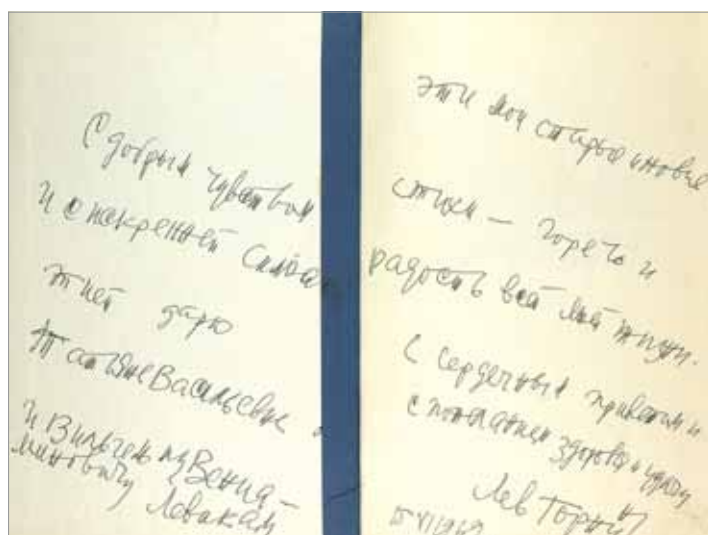 С добрым чувством
и с искренней симпа
тией дарю
Татьяне Васильевне
и Вильгельму Вениа-
миновичу Левикам
эти мои старые и новые
стихи — горечь и
радость всей моей жизни.
С сердечным приветом и
с пожеланием здоровья и удачи
Лев Горн
VI 1969